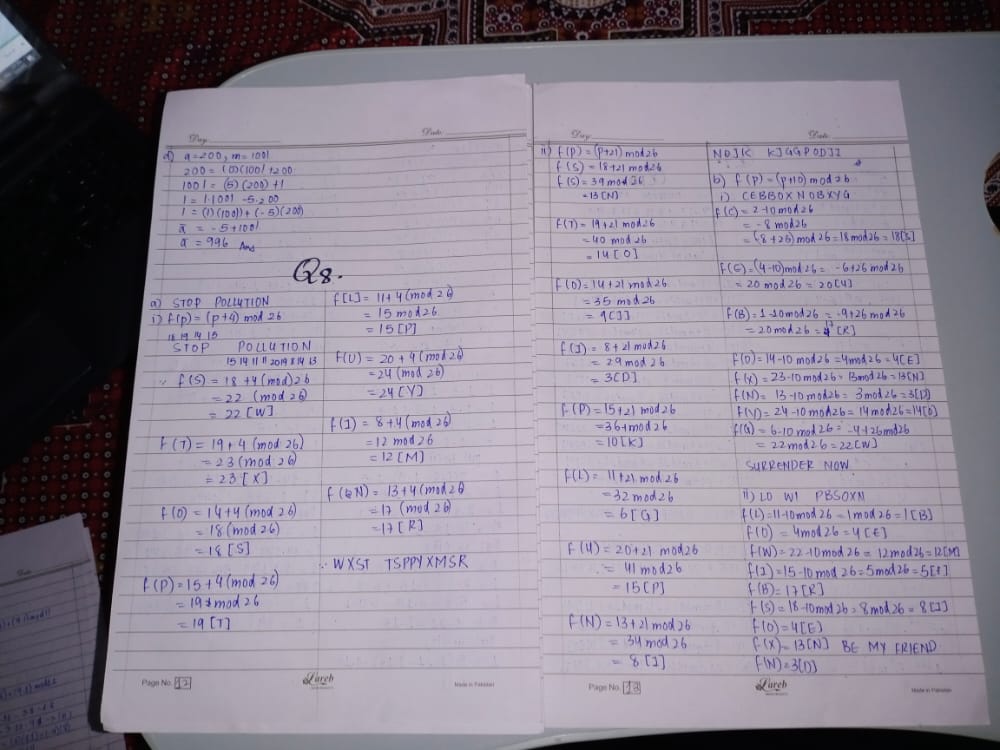 Day: Date:
d) a=200, m=1001
200 = (0)(1001)+200
1001 = (5)(200)+1
1 = 1·1001 -5·200
1 = (1)(1001)+(-5)(200)
a̅ = -5+1001
a̅ = 996 Ans
Q8.
a) STOP POLLUTION
i) f(p) = (p+4) mod 26
18 19 14 15
STOP POLLUTION
15 14 11 11 20 19 8 14 13
∵ f(S) = 18 +4 (mod)26
= 22 (mod 26)
= 22 [W]
f(T) = 19+4 (mod 26)
= 23 (mod 26)
= 23 [X]
f(O) = 14+4 (mod 26)
= 18 (mod 26)
= 18 [S]
f(P) = 15+4 (mod 26)
= 19 mod 26
= 19 [T]
f[L] = 11+4 (mod 26)
= 15 mod 26
= 15 [P]
f(U) = 20+4 (mod 26)
= 24 (mod 26)
= 24 [Y]
f(I) = 8+4 (mod 26)
= 12 mod 26
= 12 [M]
f(N) = 13+4 (mod 26)
= 17 (mod 26)
= 17 [R]
∴ WXST TSPPYXMSR
Page No. 12
Lareb
Made in Pakistan
Day: Date:
ii) f(p) = (p+21) mod 26
f(S) = 18+21 mod 26
f(S) = 39 mod 26
= 13 [N]
f(T) = 19+21 mod 26
= 40 mod 26
= 14 [O]
f(O) = 14+21 mod 26
= 35 mod 26
= 9 [J]
f(I) = 8+21 mod 26
= 29 mod 26
= 3 [D]
f(P) = 15+21 mod 26
= 36 mod 26
= 10 [K]
f(L) = 11+21 mod 26
= 32 mod 26
= 6 [G]
f(U) = 20+21 mod 26
= 41 mod 26
= 15 [P]
f(N) = 13+21 mod 26
= 34 mod 26
= 8 [I]
NOJK KJGGPODJI
b) f(p) = (p+10) mod 26
i) CEBBOXNOBXYG
f(C) = 2-10 mod 26
= -8 mod 26
= (-8+26) mod 26 = 18 mod 26 = 18 [S]
f(E) = (4-10) mod 26 = -6+26 mod 26
= 20 mod 26 = 20 [U]
f(B) = 1-10 mod 26 = -9+26 mod 26
= 20 mod 26 = 17 [R]
f(O) = 14-10 mod 26 = 4 mod 26 = 4 [E]
f(X) = 23-10 mod 26 = 13 mod 26 = 13 [N]
f(N) = 13-10 mod 26 = 3 mod 26 = 3 [D]
f(Y) = 24-10 mod 26 = 14 mod 26 = 14 [O]
f(G) = 6-10 mod 26 = -4+26 mod 26
= 22 mod 26 = 22 [W]
SURRENDER NOW.
ii) LO WI PBSOXN
f(L) = 11-10 mod 26 = 1 mod 26 = 1 [B]
f(O) = 4 mod 26 = 4 [E]
f(W) = 22-10 mod 26 = 12 mod 26 = 12 [M]
= 15-10 mod 26 = 5 mod 26 = 5
f(B) = 17 [R]
f(S) = 18-10 mod 26 = 8 mod 26 = 8 [I]
f(O) = 4 [E]
f(X) = 13 [N] BE MY FRIEND
f(N) = 3 [D]
Page No. 13
Lareb
Made in Pakistan